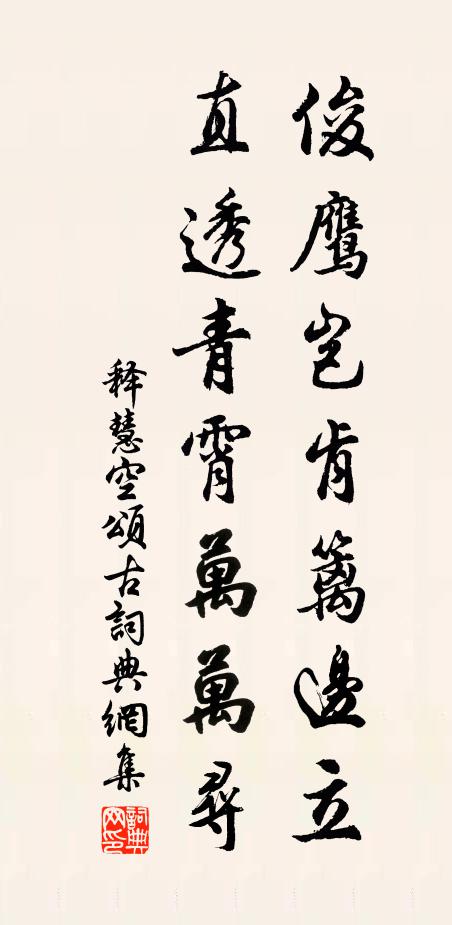 俊鷹豈肯籬邊立
直透青霄萬萬尋
释慧空頌古詞典網集
詞典網印